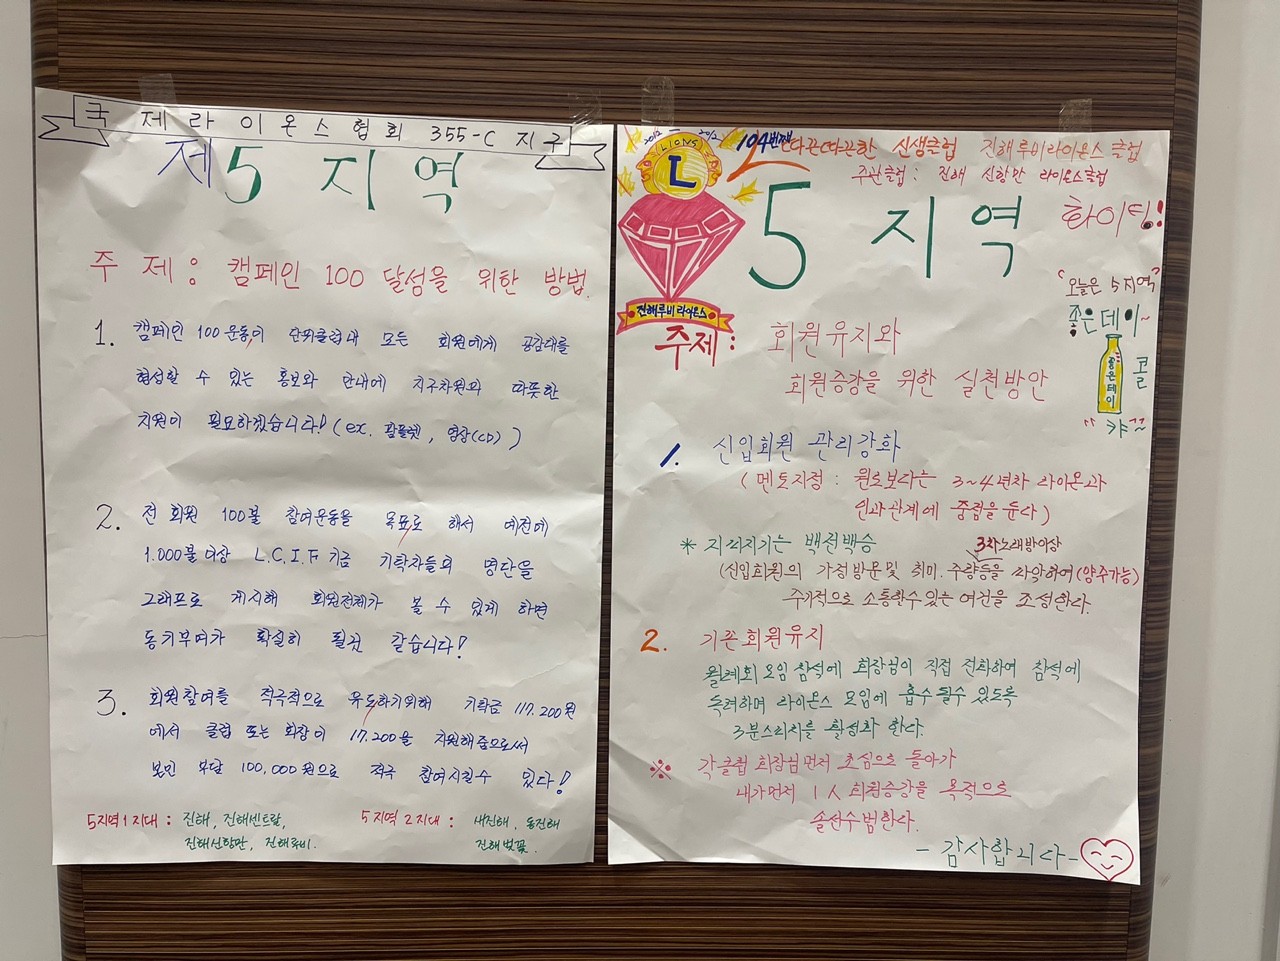 국제라이온스협회 355-C 지구
제5지역
주제: 캠페인 100 달성을 위한 방법.
1. 캠페인 100 운동이 단위클럽내 모든 회원에게 공감대를
형성할 수 있는 홍보와 안내에 지구차원의 따뜻한
지원이 필요하겠습니다! (ex. 팜플렛, 영상(CD))
2. 전 회원 100불 참여운동을 목표로 해서 예전에
1.000불이상 L.C.I.F 기금 기탁자들의 명단을
그래프로 게시해 회원전체가 볼 수 있게 하면
동기부여가 확실히 될것 같습니다!
3. 회원참여를 적극적으로 유도하기위해 기탁금 117.200원
에서 클럽 또는 회장이 17.200을 지원해줌으로써
본인 부담 100,000원으로 적극 참여시킬수 있다!
5지역1지대: 진해, 진해센트랄,
진해신항만, 진해루비.
5지역 2지대: 내진해, 동진해
진해벚꽃.
LIONS
L
진해루비라이온스
104번째 따끈따끈한 신생클럽 진해루비라이온스 클럽
주관클럽: 진해 신항만 라이온스클럽
5지역 화이팅!
"오늘은 5지역"
좋은데이~
좋은데이
콜
"캬~"
주제: 회원유지와
회원증강을 위한 실천방안
1. 신입회원 관리강화
(멘토지정: 원로보다는 3~4년차 라이온과
인과관계에 중점을 둔다)
* 지피지기는 백전백승
3차노래방이상
(신입회원의 가정방문및 취미, 주량등을 파악하여(양주가능)
주기적으로 소통할수있는 여건을 조성한다.
2. 기존회원유지
월례회모임 참석에 회장님이 직접 전화하여 참석에
독려하며 라이온스 모임에 흡수될수 있도록
3분스피치를 활성화 한다.
※ 각클럽 회장님먼저 초심으로 돌아가
내가먼저 1人 회원증강을 목적으로
솔선수범한다.
- 감사합니다 -